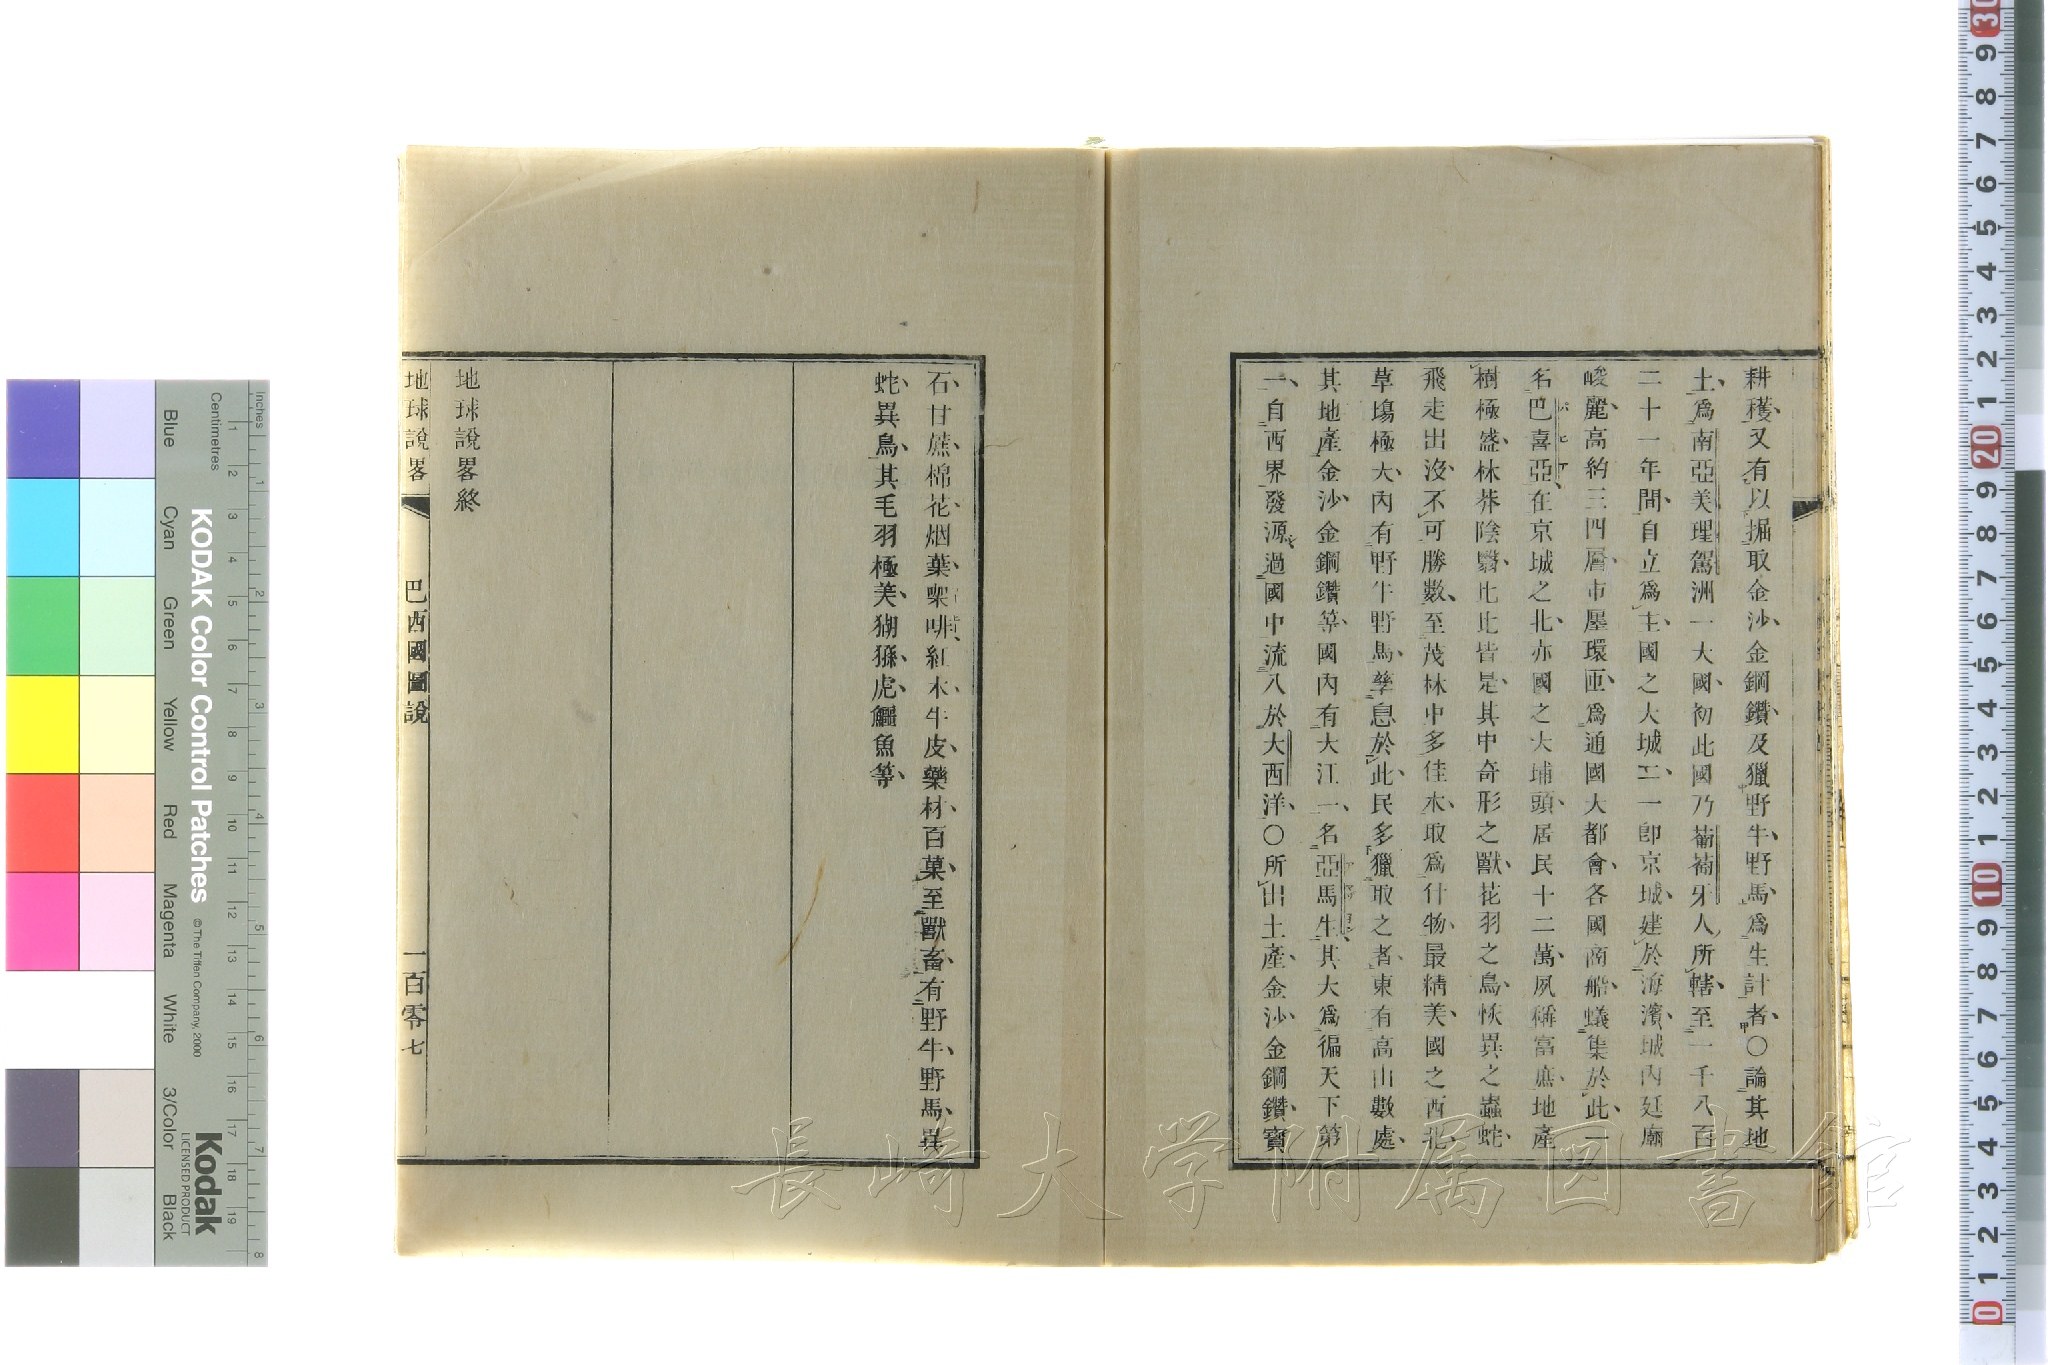 耕穫又有以掘取金沙金鋼鑽及獵野牛野馬爲生計者〇論其地
土爲南亞美理駕洲一大國初此國乃葡萄牙人所轄至一千八百
二十一年間自立爲主國之大城二一卽京城建於海濱城內廷廟
峻麗高約三四層市廛環匝爲通國大都會各國商船蟻集於此一
名巴喜亞在京城之北亦國之大埔頭居民十二萬夙稱富庶地產
樹極盛林莽陰翳比比皆是其中奇形之獸花羽之鳥恢異之蟲蛇
飛走出沒不可勝數至茂林中多佳木取爲什物最精美國之西北
草塲極大內有野牛野馬孳息於此民多獵取之者東有高山數處
其地產金沙金鋼鑽等國內有大江一名亞馬生其大爲徧天下第
一自西界發源過國中流入於大西洋〇所出土產金沙金鋼鑽寶
石甘蔗棉花烟葉㗎啡紅木牛皮藥材百菓至獸畜有野牛野馬異
蛇異鳥其毛羽極美猢猻虎鱷魚等
地球說畧終
地球說畧
巴西國圖說
一百零七
長崎大学附属図書館
KODAK Color Control Patches
© The Tiffen Company, 2000
Kodak
LICENSED PRODUCT
Inches
Centimetres
Blue
Cyan
Green
Yellow
Red
Magenta
White
3/Color
Black